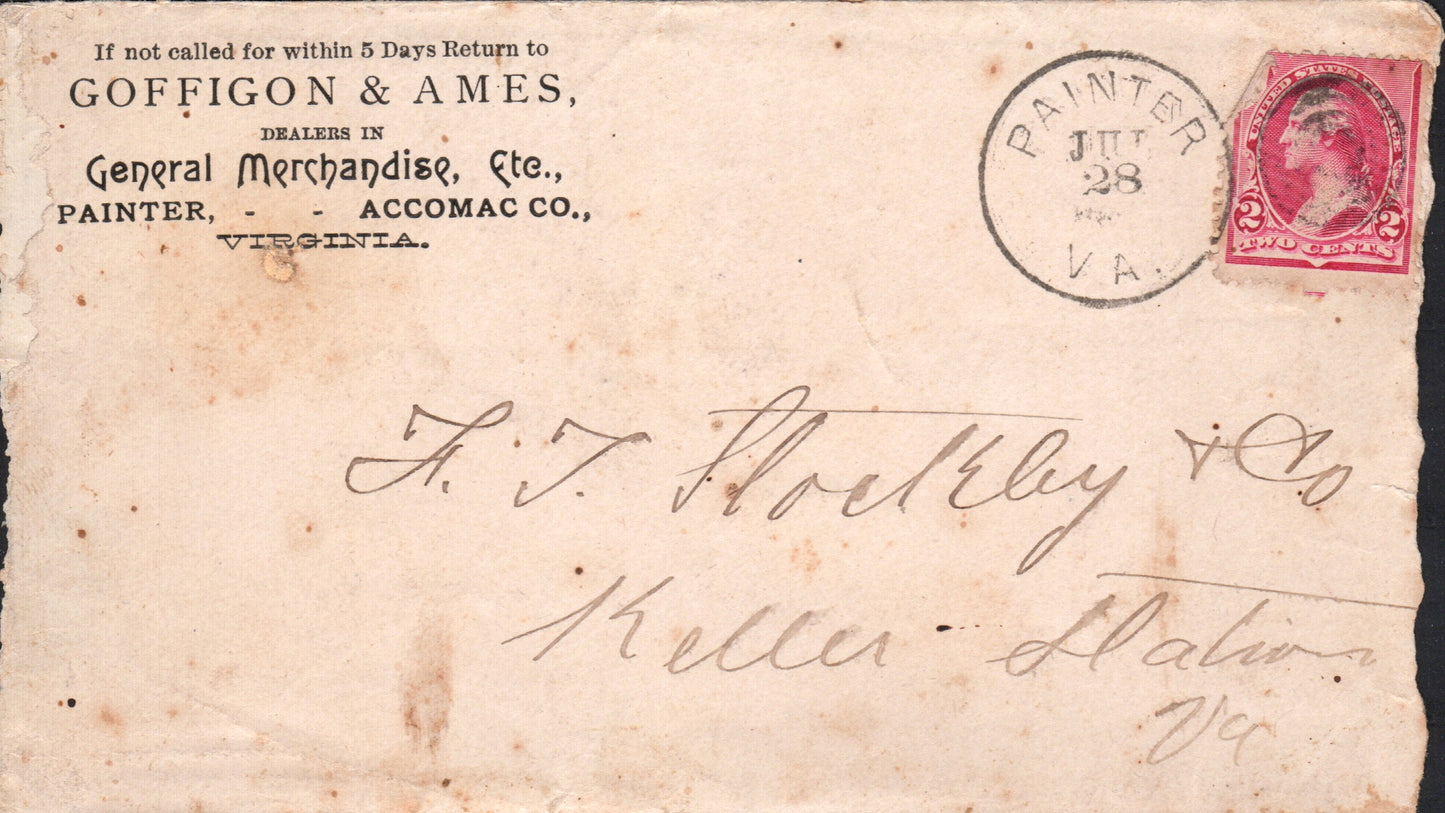 If not called for within 5 Days Return to
GOFFIGON & AMES,
DEALERS IN
General Merchandise, Etc.,
PAINTER, - - ACCOMAC CO.,
VIRGINIA.
PAINTER
JUL
28
VA.
UNITED STATES POSTAGE
2 2
TWO CENTS
F. T. Stockley & Co
Keller Station
Va